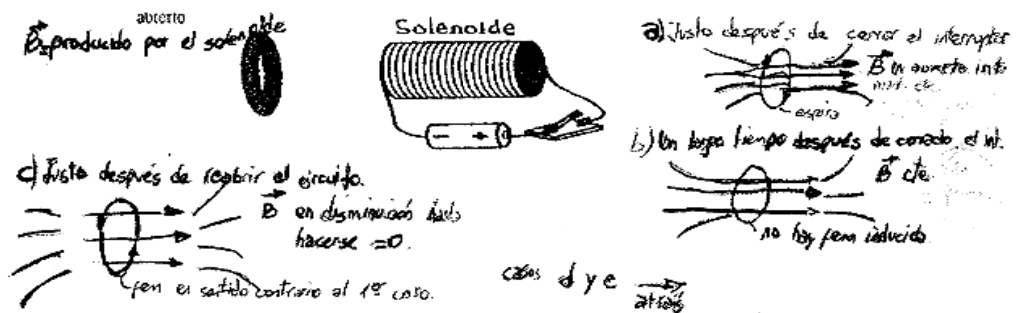 abierto
B producido por el solenoide
Solenoide
a) Justo después de cerrar el interruptor
B en aumento
espira
b) Un largo tiempo después de cerrado el int.
B cte
no hay fem inducida
c) Justo después de reabrir el circuito.
B en disminución hasta
hacerse =0.
fem en sentido contrario al 1er caso.
casos d y e
atrás